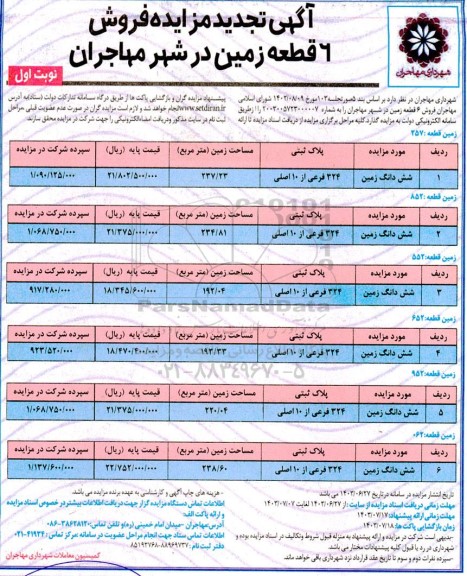 آگهی تجدید مزایده فروش
۶ قطعه زمین در شهر مهاجران
نوبت اول
شهرداری مهاجران
شهرداری مهاجران در نظر دارد بر اساس بند ۵ صورتجلسه ۱۰۳ مورخ ۱۴۰۲/۰۸/۰۹ شورای اسلامی
مهاجران فروش ۶ قطعه زمین در شهر مهاجران را به شماره ۲۰۰۳۰۰۵۷۲۳۰۰۰۰۰۷ را از طریق
سامانه الکترونیکی دولت به مزایده گذارد. کلیه مراحل برگزاری مزایده از دریافت اسناد مزایده تا ارائه
پیشنهاد مزایده گران و بازگشایی پاکت ها از طریق درگاه سامانه تدارکات دولت (ستاد) به آدرس
www.setdiran.ir انجام خواهد شد و لازم است مزایده گران در صورت عدم عضویت قبلی، مراحل
ثبت نام در سایت مذکور و دریافت امضاء الکترونیکی را جهت شرکت در مزایده محقق سازند.
زمین قطعه ۲۵۷:
ردیف مورد مزایده پلاک ثبتی مساحت زمین (متر مربع) قیمت پایه (ریال) سپرده شرکت در مزایده
۱ شش دانگ زمین ۳۲۴ فرعی از ۱۰ اصلی ۲۳۷/۲۳ ۲۱/۸۰۲/۵۰۰/۰۰۰ ۱/۰۹۰/۱۲۵/۰۰۰
زمین قطعه ۸۵۲:
ردیف مورد مزایده پلاک ثبتی مساحت زمین (متر مربع) قیمت پایه (ریال) سپرده شرکت در مزایده
۲ شش دانگ زمین ۳۲۴ فرعی از ۱۰ اصلی ۲۳۴/۸۱ ۲۱/۳۷۵/۰۰۰/۰۰۰ ۱/۰۶۸/۷۵۰/۰۰۰
زمین قطعه ۵۵۲:
ردیف مورد مزایده پلاک ثبتی مساحت زمین (متر مربع) قیمت پایه (ریال) سپرده شرکت در مزایده
۳ شش دانگ زمین ۳۲۴ فرعی از ۱۰ اصلی ۱۹۲/۰۴ ۱۸/۳۴۵/۶۰۰/۰۰۰ ۹۱۷/۲۸۰/۰۰۰
زمین قطعه ۶۵۲:
ردیف مورد مزایده پلاک ثبتی مساحت زمین (متر مربع) قیمت پایه (ریال) سپرده شرکت در مزایده
۴ شش دانگ زمین ۳۲۴ فرعی از ۱۰ اصلی ۱۹۳/۳۳ ۱۸/۴۷۰/۴۰۰/۰۰۰ ۹۲۳/۵۲۰/۰۰۰
زمین قطعه ۹۵۲:
ردیف مورد مزایده پلاک ثبتی مساحت زمین (متر مربع) قیمت پایه (ریال) سپرده شرکت در مزایده
۵ شش دانگ زمین ۳۲۴ فرعی از ۱۰ اصلی ۲۲۰/۰۴ ۲۱/۳۷۵/۰۰۰/۰۰۰ ۱/۰۶۸/۷۵۰/۰۰۰
زمین قطعه ۰۶۲:
ردیف مورد مزایده پلاک ثبتی مساحت زمین (متر مربع) قیمت پایه (ریال) سپرده شرکت در مزایده
۶ شش دانگ زمین ۳۲۴ فرعی از ۱۰ اصلی ۲۳۸/۶۰ ۲۲/۷۵۲/۰۰۰/۰۰۰ ۱/۱۳۷/۶۰۰/۰۰۰
تاریخ انتشار مزایده در سامانه در تاریخ ۱۴۰۳/۰۶/۲۷ می باشد
مهلت زمانی دریافت اسناد مزایده از سایت: از ۱۴۰۳/۰۶/۲۷ لغایت ۱۴۰۳/۰۷/۰۷
مهلت زمانی ارائه پیشنهاد: ۱۴۰۳/۰۷/۱۷
زمان بازگشایی پاکت ها: ۱۴۰۳/۰۷/۱۸
-بدیهی است شرکت در مزایده و ارائه پیشنهاد به منزله قبول شروط و تکالیف در اسناد مزایده بوده و
شهرداری در رد یا قبول کلیه پیشنهادات مختار می باشد.
-سپرده نفرات دوم و سوم تا تاریخ عقد قرارداد نزد شهرداری باقی خواهد ماند.
- هزینه های چاپ آگهی و کارشناسی به عهده برنده مزایده می باشد.
اطلاعات تماس دستگاه مزایده گزار جهت دریافت اطلاعات بیشتر در خصوص اسناد مزایده
و ارائه پاکت الف:
آدرس: مهاجران -میدان امام خمینی (ره) و تلفن تماس: ۳۸۶۲۸۱۲-۰۸۶
اطلاعات تماس ستاد جهت انجام مراحل عضویت در سامانه: مرکز تماس: ۴۱۹۳۴-۰۲۱
دفتر ثبت نام: ۸۸۹۶۹۷۳۷-۸۵۱۹۳۷۶۸
کمیسیون معاملات شهرداری مهاجران
ParsNamadData
۰۲۱-۸۸۳۴۹۶۷۰-۵